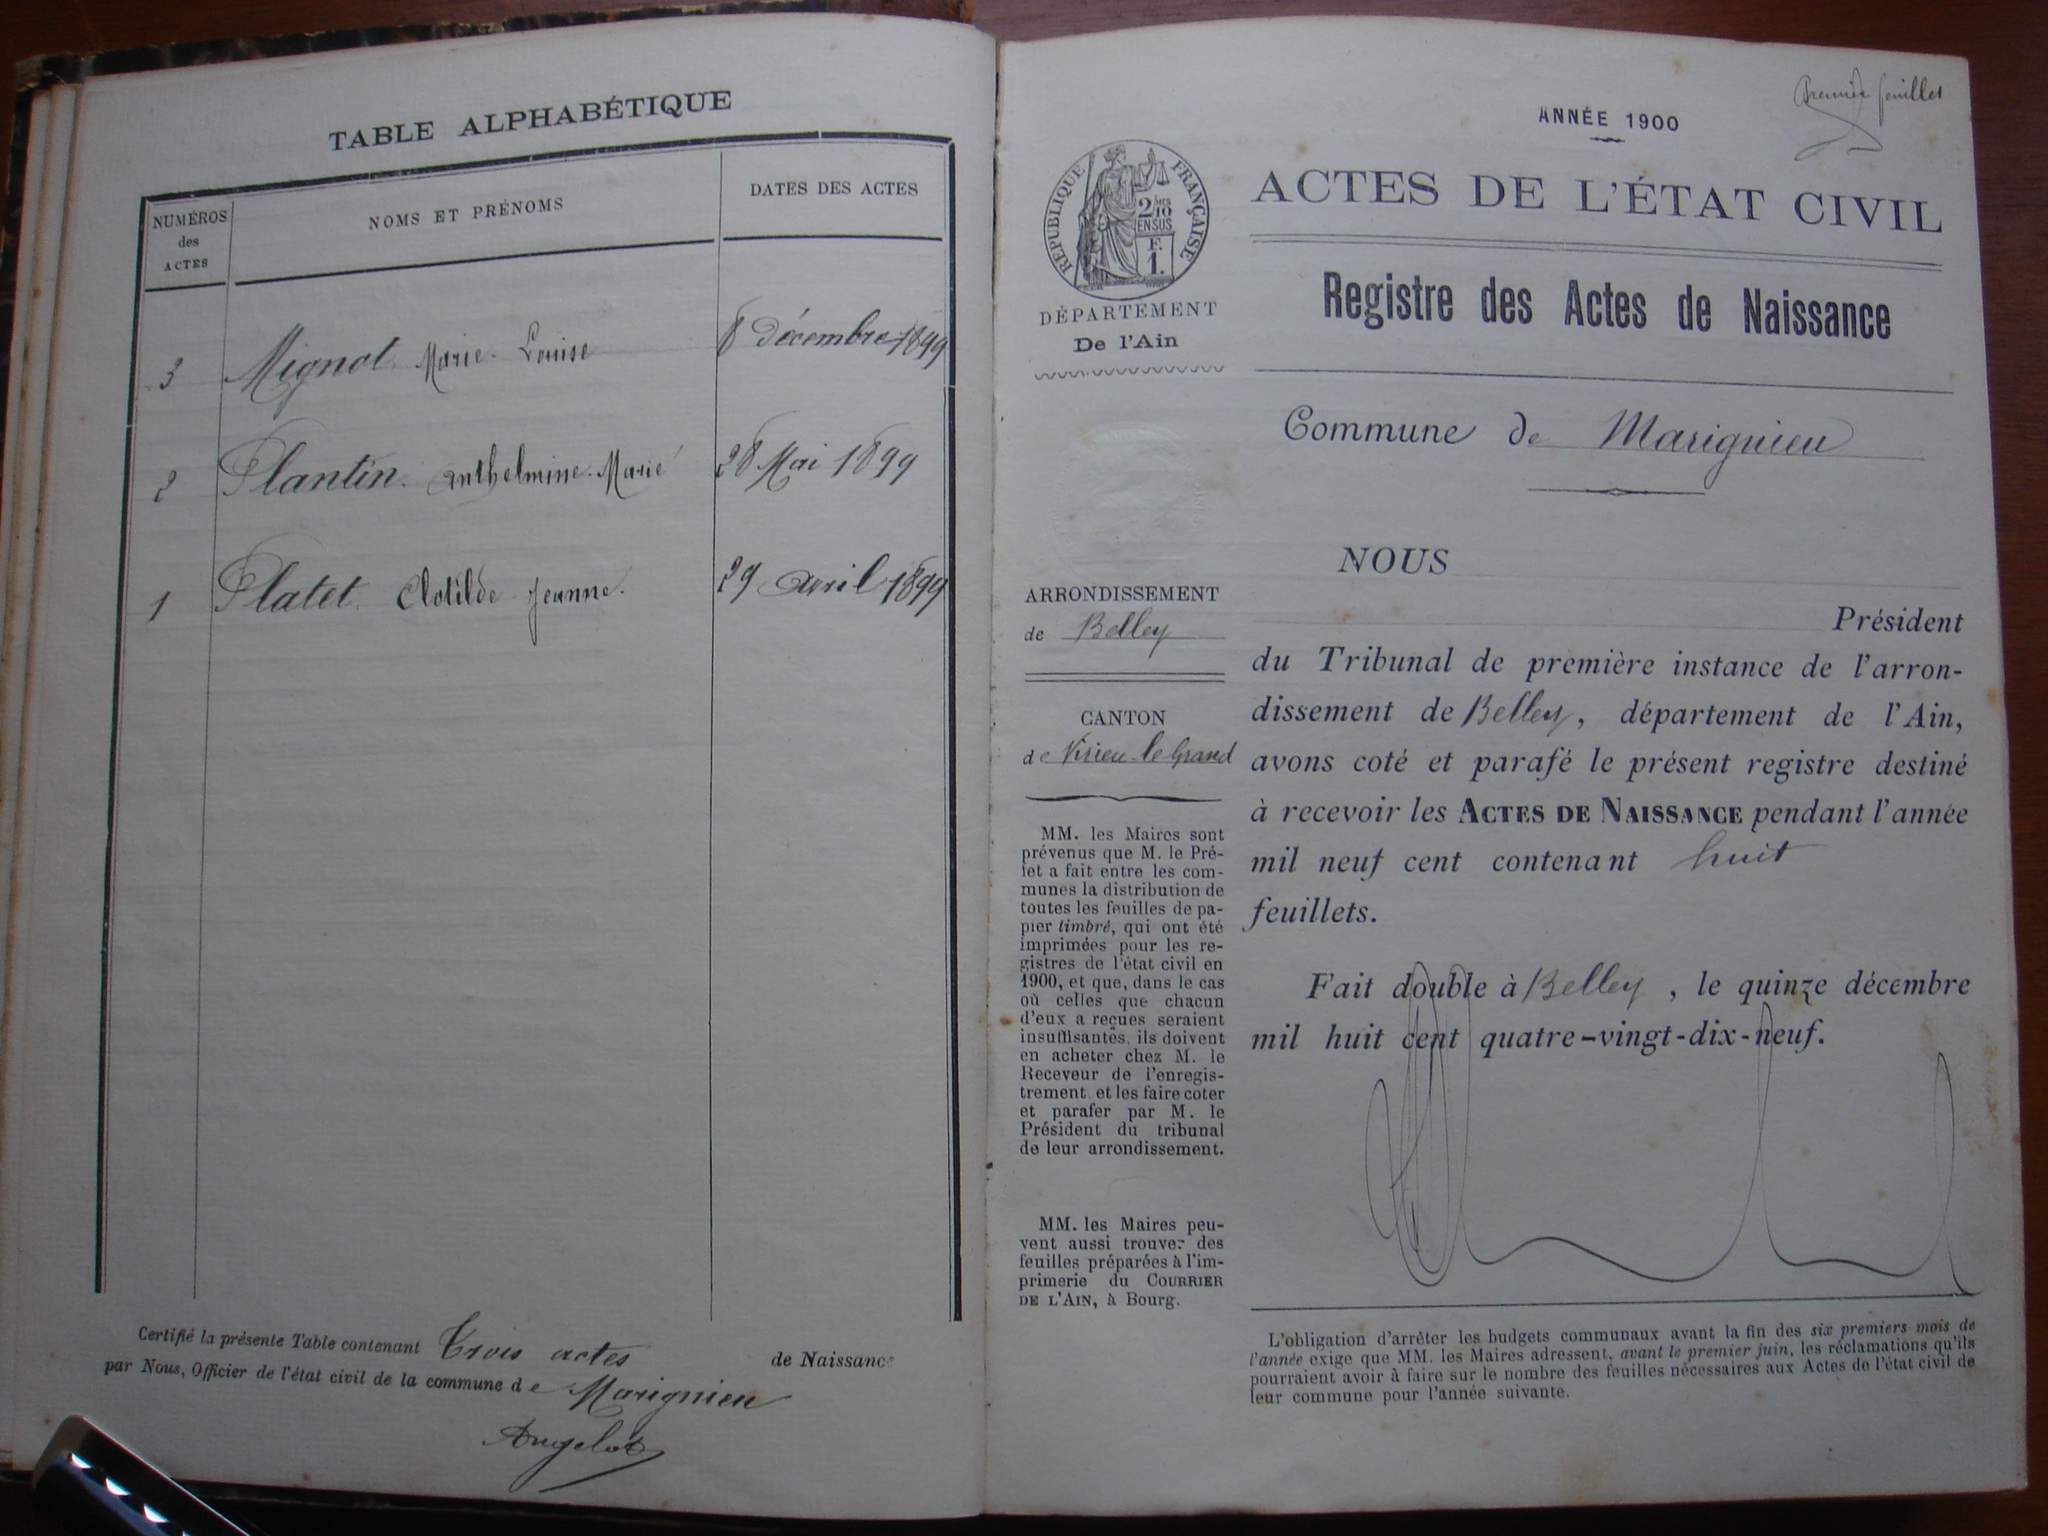 TABLE ALPHABÉTIQUE
NUMÉROS
des
ACTES
NOMS ET PRÉNOMS
DATES DES ACTES
3 Mignot Marie-Louise 8 décembre 1899
2 Plantin Anthelmine-Marie 28 Mai 1899
1 Platet Clotilde Jeanne. 29 avril 1899
Certifié la présente Table contenant Trois actes de Naissance
par Nous, Officier de l'état civil de la commune de Marignieu
Angelot
Premier feuillet
ANNÉE 1900
RÉPUBLIQUE FRANÇAISE
2/10
EN SUS
F.
1.
DÉPARTEMENT
De l'Ain
ACTES DE L'ÉTAT CIVIL
Registre des Actes de Naissance
Commune de Marignieu
ARRONDISSEMENT
de Belley
CANTON
de Virieu-le-Grand
MM. les Maires sont
prévenus que M. le Pré-
fet a fait entre les com-
munes la distribution de
toutes les feuilles de pa-
pier timbré, qui ont été
imprimées pour les re-
gistres de l'état civil en
1900, et que, dans le cas
où celles que chacun
d'eux a reçues seraient
insuffisantes, ils doivent
en acheter chez M. le
Receveur de l'enregis-
trement et les faire coter
et parafer par M. le
Président du tribunal
de leur arrondissement.
MM. les Maires peu-
vent aussi trouver des
feuilles préparées à l'im-
primerie du COURRIER
DE L'AIN, à Bourg.
NOUS
Président
du Tribunal de première instance de l'arron-
dissement de Belley, département de l'Ain,
avons coté et parafé le présent registre destiné
à recevoir les ACTES DE NAISSANCE pendant l'année
mil neuf cent contenant huit
feuillets.
Fait double à Belley, le quinze décembre
mil huit cent quatre-vingt-dix-neuf.
L'obligation d'arrêter les budgets communaux avant la fin des six premiers mois de
l'année exige que MM. les Maires adressent, avant le premier juin, les réclamations qu'ils
pourraient avoir à faire sur le nombre des feuilles nécessaires aux Actes de l'état civil de
leur commune pour l'année suivante.